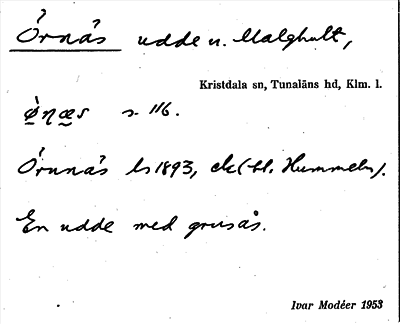 Örnäs udde u. Malghult,
Kristdala sn, Tunaläns hd, Klm. l.
s. 116.
Örnnäs ls 1893, ek (bl. Hummeln).
En udde med grusås.
Ivar Modéer 1953